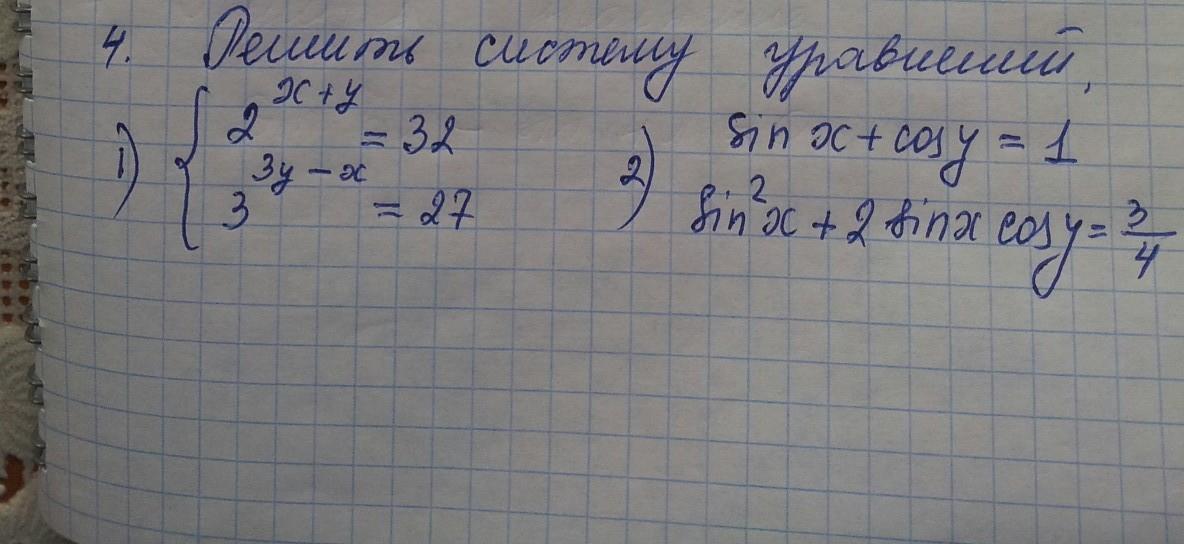 4. Решить систему уравнений,
1) { 2^(x+y) = 32
3^(3y-x) = 27
2) sin x + cos y = 1
sin²x + 2 sin x cos y = 3/4